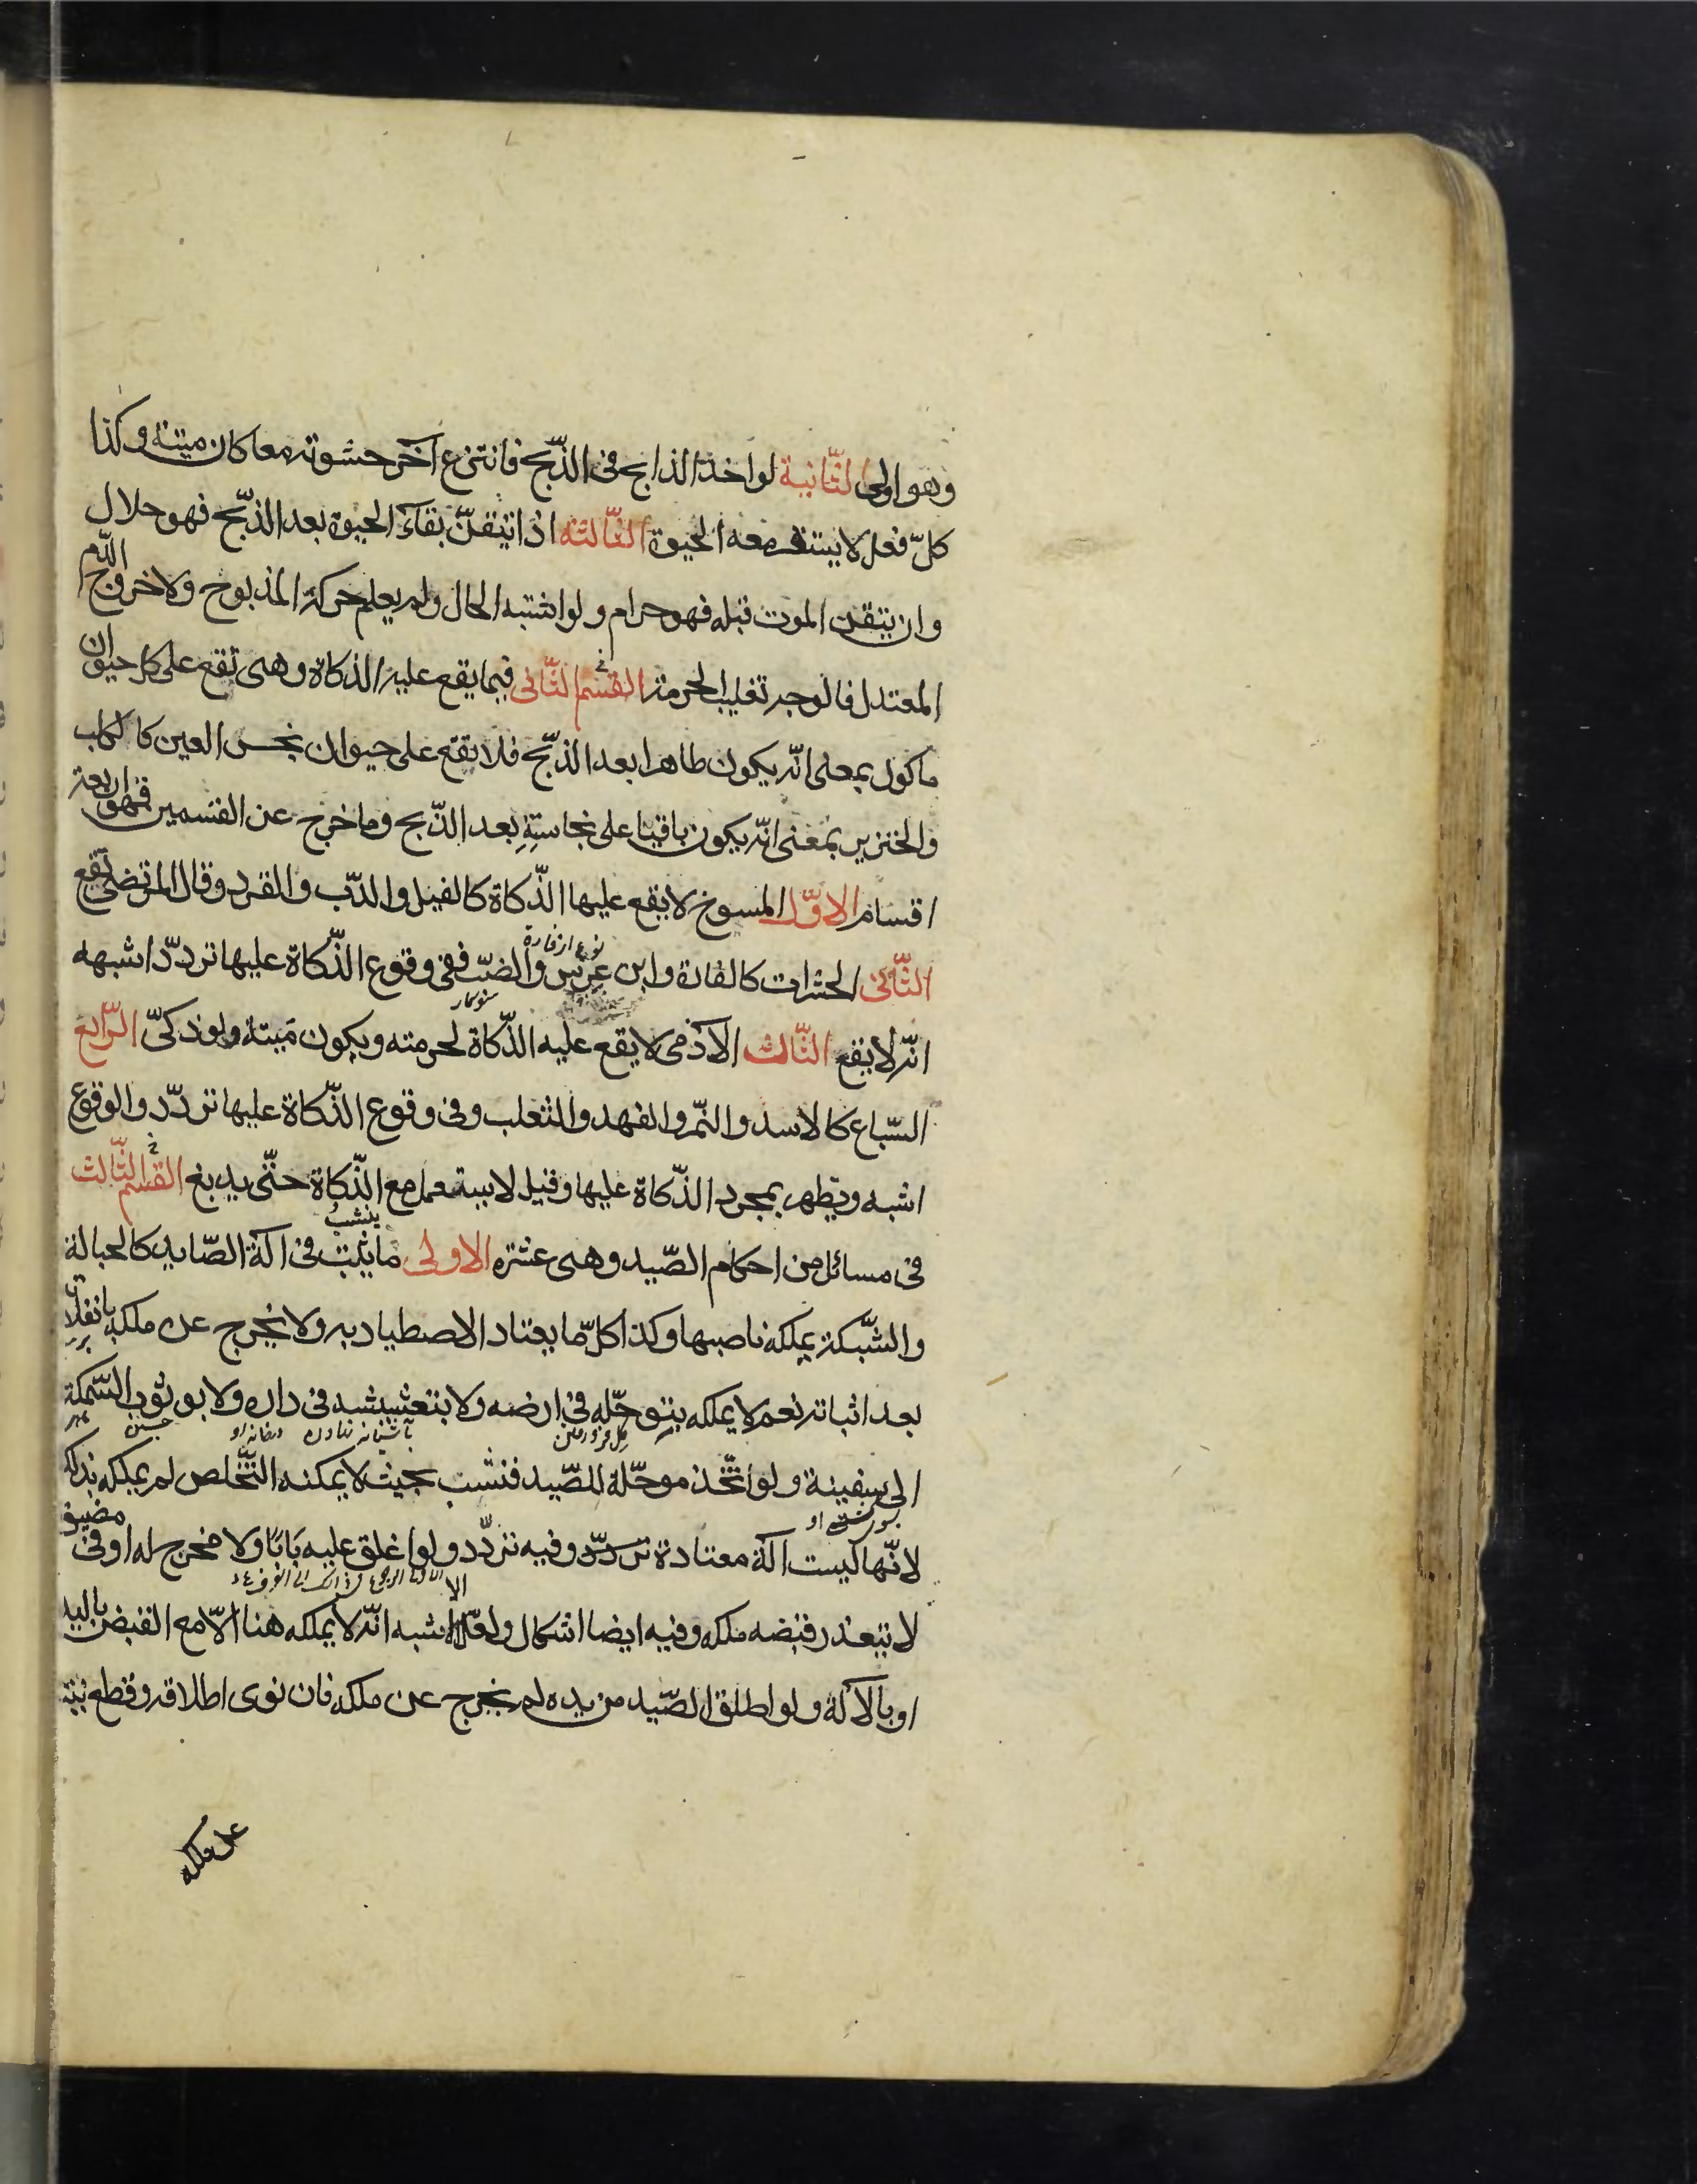 وهو اولى الثّانية لو اخذ الذابح فى الذّبح فانتزع آخر حشوته معا كان ميتة وكذا
كلّ فعل لا يستقر معه الحيوة الثّالثة اذا تيقنّ بقآء الحيوة بعد الذّبح فهو حلال
وان تيقن الموت قبله فهو حرام ولو اشتبه الحال ولم يعلم حركة المذبوح ولا خروج الدّم
المعتدل فالوجه تغليب الحرمة القسم الثّانى فيما يقع عليه الذكاة وهى تقع على كل حيوان
ماكول بمعنى انّه يكون طاهرا بعد الذّبح فلا يقع على حيوان نجس العين كالكلب
والخنزير بمعنى انّه يكون باقيا على نجاسته بعد الذّبح وما خرج عن القسمين فهو اربعة
اقسام الاوّل المسوخ لا يقع عليها الذّكاة كالفيل والدّب والقرد وقال المرتضى يقع
نوع از فارة
الثّانى الحشرات كالفارة وابن عرس والضبّ ففى وقوع الذّكاة عليها تردّد اشبهه
سوسمار
انّه لا يقع الثّالث الآدمى لا يقع عليه الذّكاة لحرمته ويكون ميتة ولو ذكىّ الرّابع
السّباع كالاسد والنّمر والفهد والثعلب وفى وقوع الذّكاة عليها تردّد والوقوع
اشبه ويطهر بمجرد الذّكاة عليها وقيل لا يستعمل مع الذّكاة حتّى يدبغ القسم الثّالث
ينشب
فى مسائل من احكام الصّيد وهى عشرة الاولى ما يثبت فى آلة الصّايد كالحبالة
والشّبكة يملكه ناصبها وكذا كلّ ما يعتاد الاصطياد به ولا يخرج عن ملكه بانفلاته
بعد اثباته نعم لا يملكه بتوحّله فى ارضه ولا بتعشيشه فى داره ولا بوثوب السّمكة
بآشيانه نهادن در خانه او جستن
الى سفينة ولو اتّخذ موحّلة للصّيد فنشب بحيث لا يمكنه التّخلص لم يملكه بذلك
لانّها ليست آلة معتادة وفيه تردّد ولو اغلق عليه بابا ولا مخرج له او فى مضيق
لا يتعذر قبضه ملكه وفيه ايضا اشكال ولعلّ الاشبه انّه لا يملكه هنا الّا مع القبض باليد
او بالآلة ولو اطلق الصّيد من يده لم يخرج عن ملكه فان نوى اطلاقه وقطع نيته
عن ملكه